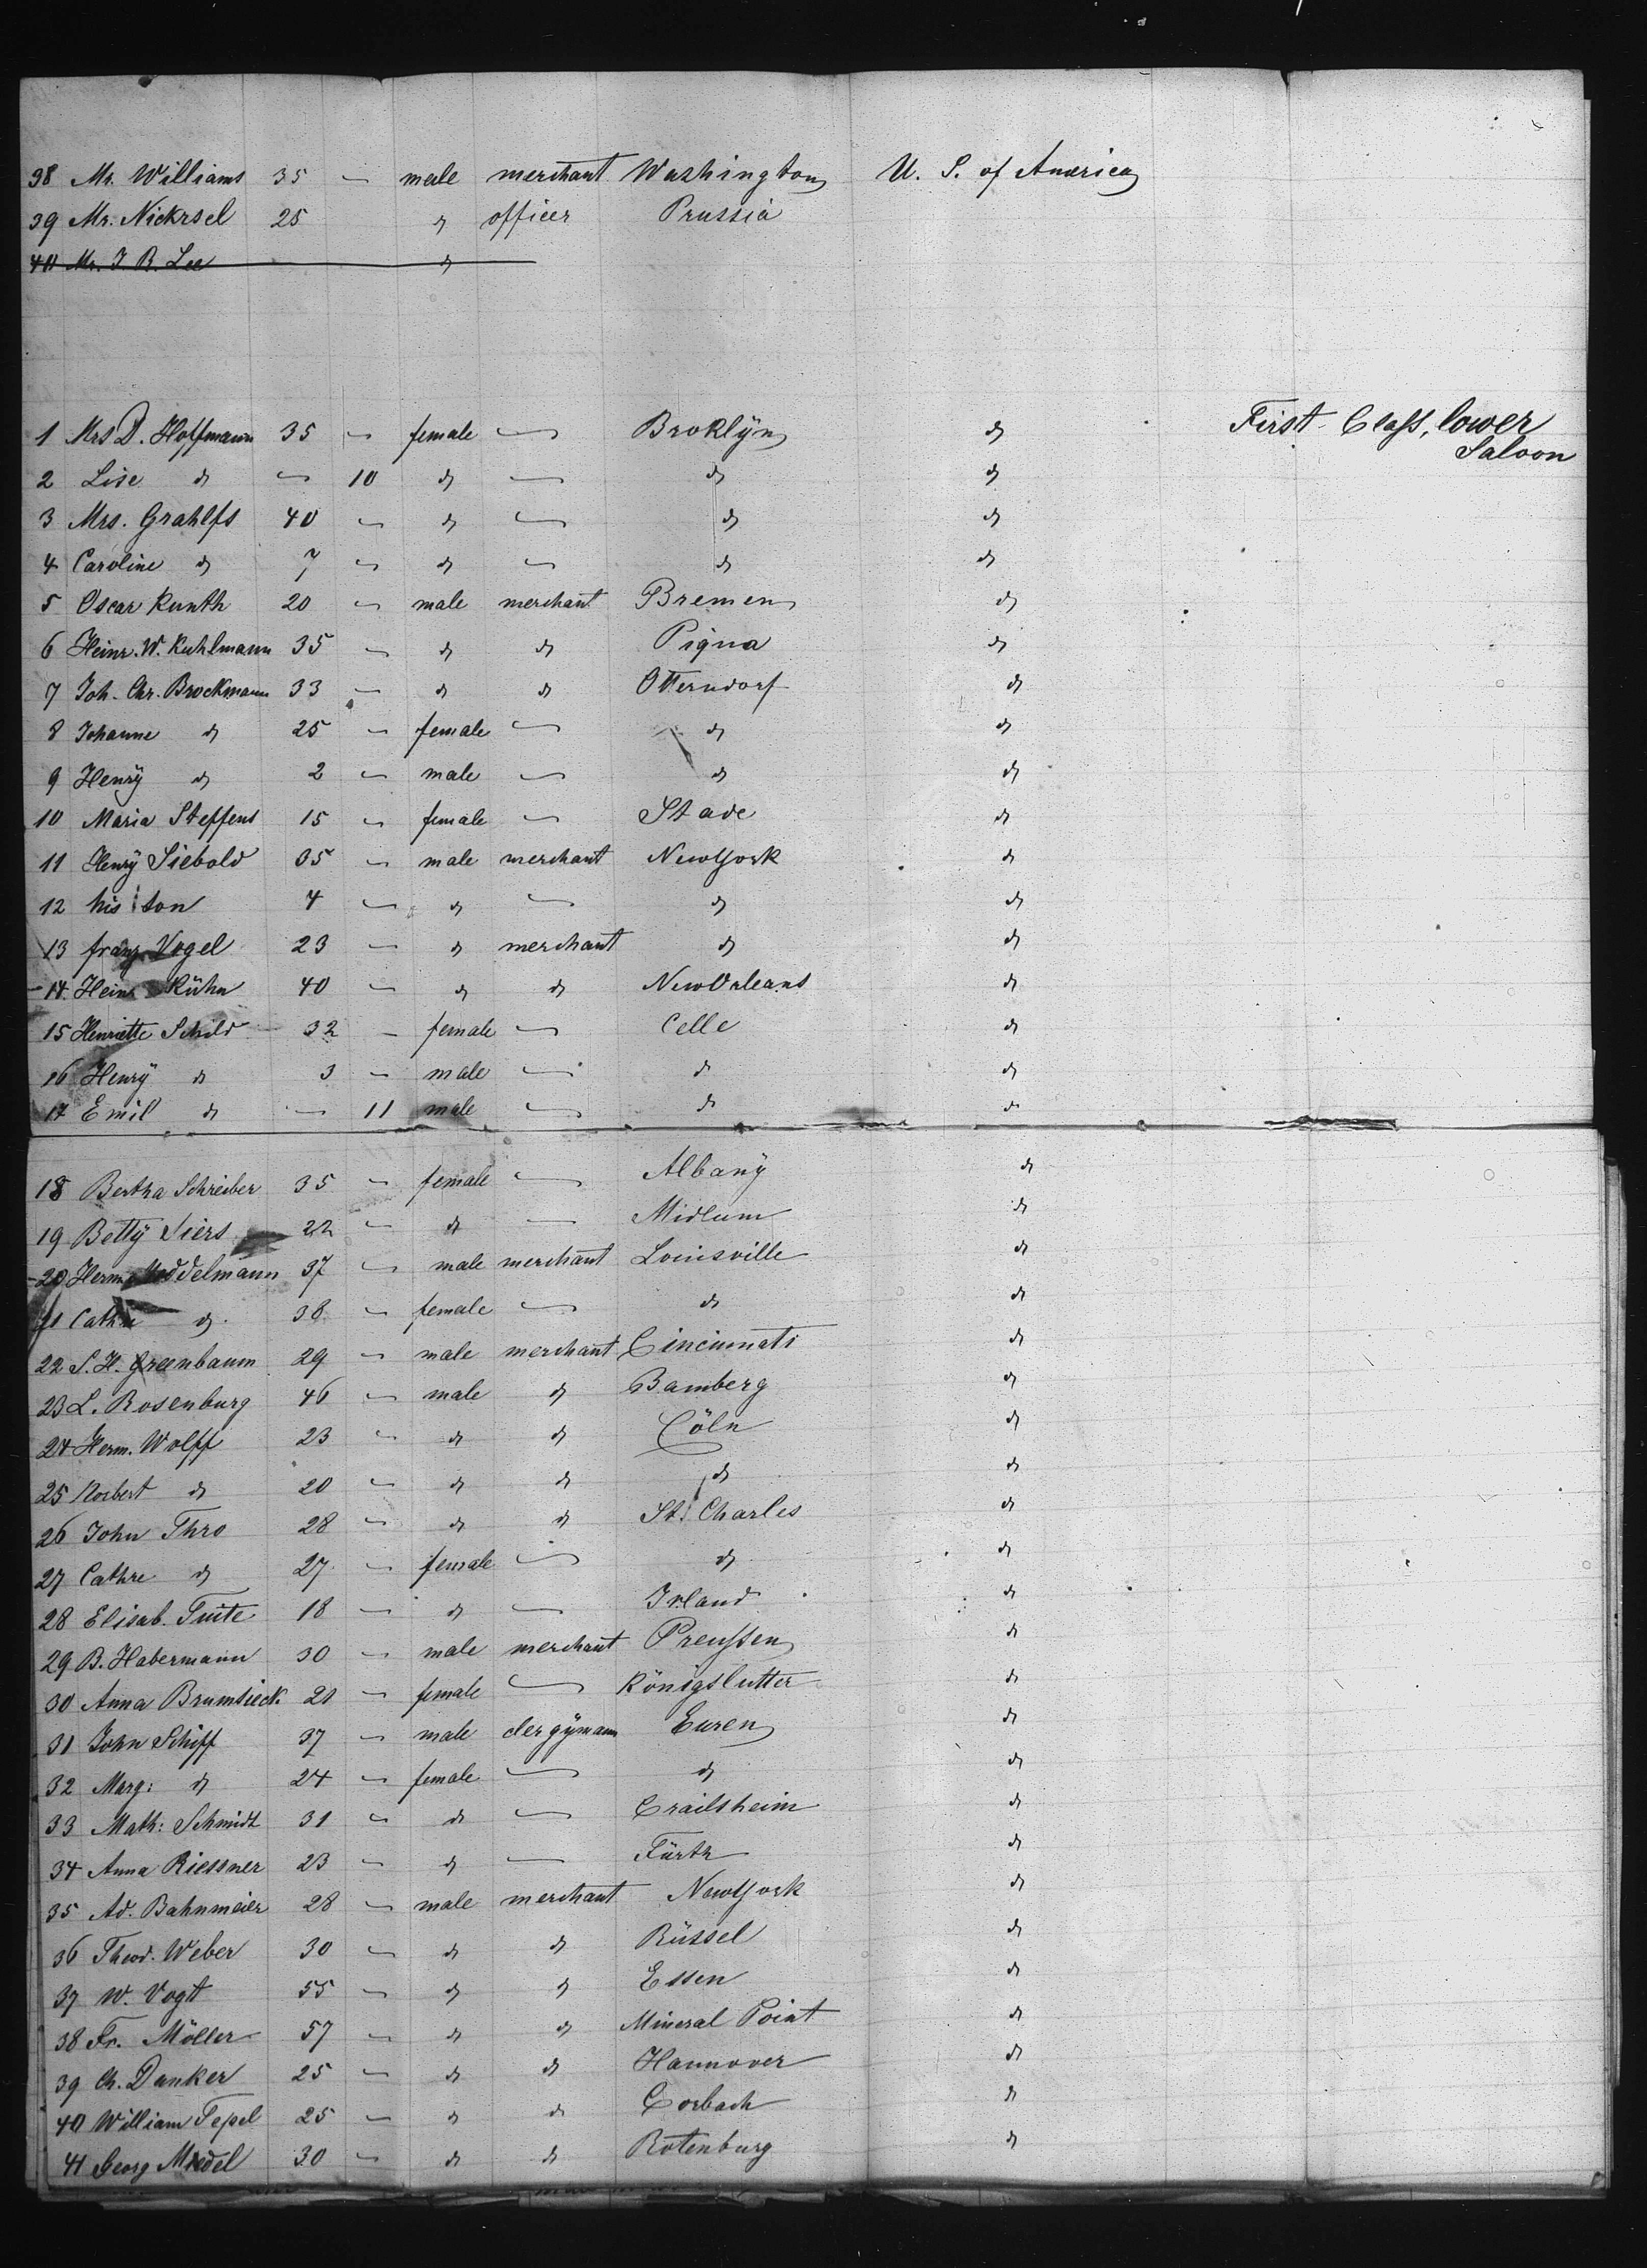 38 Mr. Williams 35 — male merchant Washington U. S. of America
39 Mr. Nickrsel 25 do officer Prussia
40 Mr. J. R. Lee do
First Class, lower
Saloon
1 Mrs D. Hoffmann 35 — female — Broklÿn do
2 Lise do — 10 do — do do
3 Mrs. Grahlfs 40 — do — do do
4 Caroline do 7 — do — do do
5 Oscar Kunth 20 — male merchant Bremen do
6 Heinr. W. Kuhlmann 35 — do do Piqua do
7 Joh. Chr. Brockmann 33 — do do Otterndorf do
8 Johanne do 25 — female — do do
9 Henrÿ do 2 — male — do do
10 Maria Steffens 15 — female — Stade do
11 Henrÿ Siebold 35 — male merchant NewYork do
12 his son 4 — do — do do
13 franz Vogel 23 — do merchant do do
14 Heinr Kühn 40 — do do NewOrleans do
15 Henriette Schild 32 — female — Celle do
16 Henrÿ do 3 — male — do do
17 Emil do — 11 male — do do
18 Bertha Schreiber 35 — female — Albanÿ do
19 Bettÿ Siers 22 — do — Midlum do
20 Herm 37 — male merchant Louisville do
21 Cathre do 38 — female — do do
22 S. H. Greenbaum 29 — male merchant Cincinnati do
23 L. Rosenburg 46 — male do Bamberg do
24 Herm. Wolff 23 — do do Cöln do
25 Norbert do 20 — do do do do
26 John Thro 28 — do do St. Charles do
27 Cathre do 27 — female — do do
28 Elisab. Tuite 18 — do — Irland do
29 B. Habermann 30 — male merchant Preußen do
30 Anna Brumsieck 21 — female — Königslutter do
31 John Schiff 37 — male clergÿmann Euren do
32 Marg: do 24 — female — do do
33 Math: Schmidt 31 — do — Crailsheim do
34 Anna Riessner 23 — do — Fürth do
35 Ad. Bahnmeier 28 — male merchant NewYork do
36 Theod. Weber 30 — do do Büssel do
37 W. Vogt 55 — do do Essen do
38 Fr. Möller 57 — do do Mineral Point do
39 Ch. Danker 25 — do do Hannover do
40 William Tepel 25 — do do Corbach do
41 Georg 30 — do do Rotenburg do